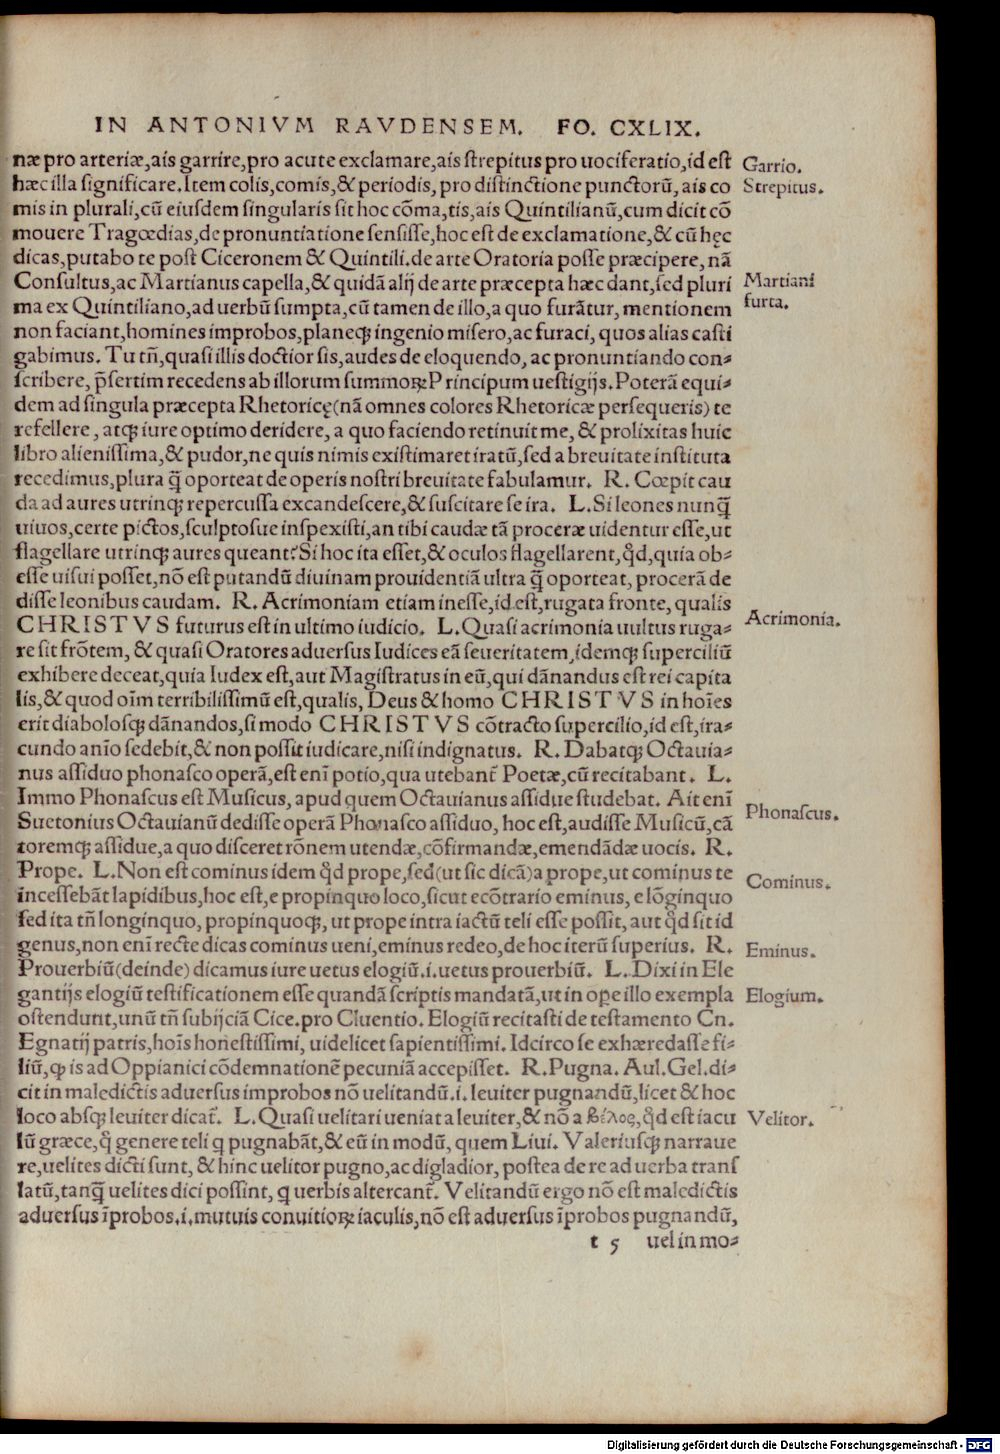 IN ANTONIVM RAVDENSEM. FO. CXLIX.
næ pro arteriæ, ais garrire, pro acute exclamare, ais strepitus pro uociferatio, id est
hæc illa significare. Item colis, comis, & periodis, pro distinctione punctorũ, ais co
mis in plurali, cũ eiusdem singularis sit hoc cõma, tis, ais Quintilianũ, cum dicit cõ
mouere Tragœdias, de pronuntiatione sensisse, hoc est de exclamatione, & cũ hęc
dicas, putabo te post Ciceronem & Quintili. de arte Oratoria posse præcipere, nã
Consultus, ac Martianus capella, & quidã alij de arte præcepta hæc dant, sed pluri
ma ex Quintiliano, ad uerbũ sumpta, cũ tamen de illo, a quo furãtur, mentionem
non faciant, homines improbos, planeqꝫ ingenio misero, ac furaci, quos alias casti
gabimus. Tu tñ, quasi illis doctior sis, audes de eloquendo, ac pronuntiando con-
scribere, p̃sertim recedens ab illorum summoꝝ Principum uestigijs. Poterã equi-
dem ad singula præcepta Rhetoricę (nã omnes colores Rhetoricæ persequeris) te
refellere, atqꝫ iure optimo deridere, a quo faciendo retinuit me, & prolixitas huic
libro alienissima, & pudor, ne quis nimis existimaret iratũ, sed a breuitate instituta
recedimus, plura q̃ oporteat de operis nostri breuitate fabulamur. R. Cœpit cau
da ad aures utrinqꝫ repercussa excandescere, & suscitare se ira. L. Si leones nunq̃
uiuos, certe pictos, sculptosue inspexisti, an tibi caudæ tã proceræ uidentur esse, ut
flagellare utrinqꝫ aures queant? Si hoc ita esset, & oculos flagellarent, qđ, quia ob-
esse uisui posset, nõ est putandũ diuinam prouidentiã ultra q̃ oporteat, procerã de
disse leonibus caudam. R. Acrimoniam etiam inesse, id est, rugata fronte, qualis
CHRISTVS futurus est in ultimo iudicio. L. Quasi acrimonia uultus ruga-
re sit frõtem, & quasi Oratores aduersus Iudices eã seueritatem, idemqꝫ superciliũ
exhibere deceat, quia Iudex est, aut Magistratus in eũ, qui dãnandus est rei capita
lis, & quod oĩm terribilissimũ est, qualis, Deus & homo CHRISTVS in hoĩes
erit diabolosqꝫ dãnandos, si modo CHRISTVS cõtracto supercilio, id est, ira-
cundo anĩo sedebit, & non possit iudicare, nisi indignatus. R. Dabatqꝫ Octauia-
nus assiduo phonasco operã, est enĩ potio, qua utebant̃ Poetæ, cũ recitabant. L.
Immo Phonascus est Musicus, apud quem Octauianus assidue studebat. Ait enĩ
Suetonius Octauianũ dedisse operã Phonasco assiduo, hoc est, audisse Musicũ, cã
toremqꝫ assidue, a quo disceret rõnem utendæ, cõfirmandæ, emendãdæ uocis. R.
Prope. L. Non est cominus idem qđ prope, sed (ut sic dicã) a prope, ut cominus te
incessebãt lapidibus, hoc est, e propinquo loco, sicut ecõtrario eminus, e lõginquo
sed ita tñ longinquo, propinquoqꝫ, ut prope intra iactũ teli esse possit, aut qđ sit id
genus, non enĩ recte dicas cominus ueni, eminus redeo, de hoc iterũ superius. R.
Prouerbiũ (deinde) dicamus iure uetus elogiũ .i. uetus prouerbiũ. L. Dixi in Ele
gantijs elogiũ testificationem esse quandã scriptis mandatã, ut in ope illo exempla
ostendunt, unũ tñ subijciã Cice. pro Cluentio. Elogiũ recitasti de testamento Cn.
Egnatij patris, hoĩs honestissimi, uidelicet sapientissimi. Idcirco se exhæredasse fi-
liũ, ꝙ is ad Oppianici cõdemnationẽ pecuniã accepisset. R. Pugna. Aul. Gel. di-
cit in maledictis aduersus improbos nõ uelitandũ .i. leuiter pugnandũ, licet & hoc
loco absqꝫ leuiter dicat̃. L. Quasi uelitari ueniat a leuiter, & nõ a βέλος, qđ est iacu
lũ græce, q̃ genere teli q pugnabãt, & eũ in modũ, quem Liui. Valeriusqꝫ narraue
re, uelites dicti sunt, & hinc uelitor pugno, ac digladior, postea de re ad uerba trans
latũ, tanq̃ uelites dici possint, q uerbis altercant̃. Velitandũ ergo nõ est maledictis
aduersus ĩprobos .i. mutuis conuitioꝝ iaculis, nõ est aduersus ĩprobos pugnandũ,
t 5 uel in mo-
Garrio.
Strepitus.
Martiani
furta.
Acrimonia.
Phonascus.
Cominus.
Eminus.
Elogium.
Velitor.
Digitalisierung gefördert durch die Deutsche Forschungsgemeinschaft - DFG